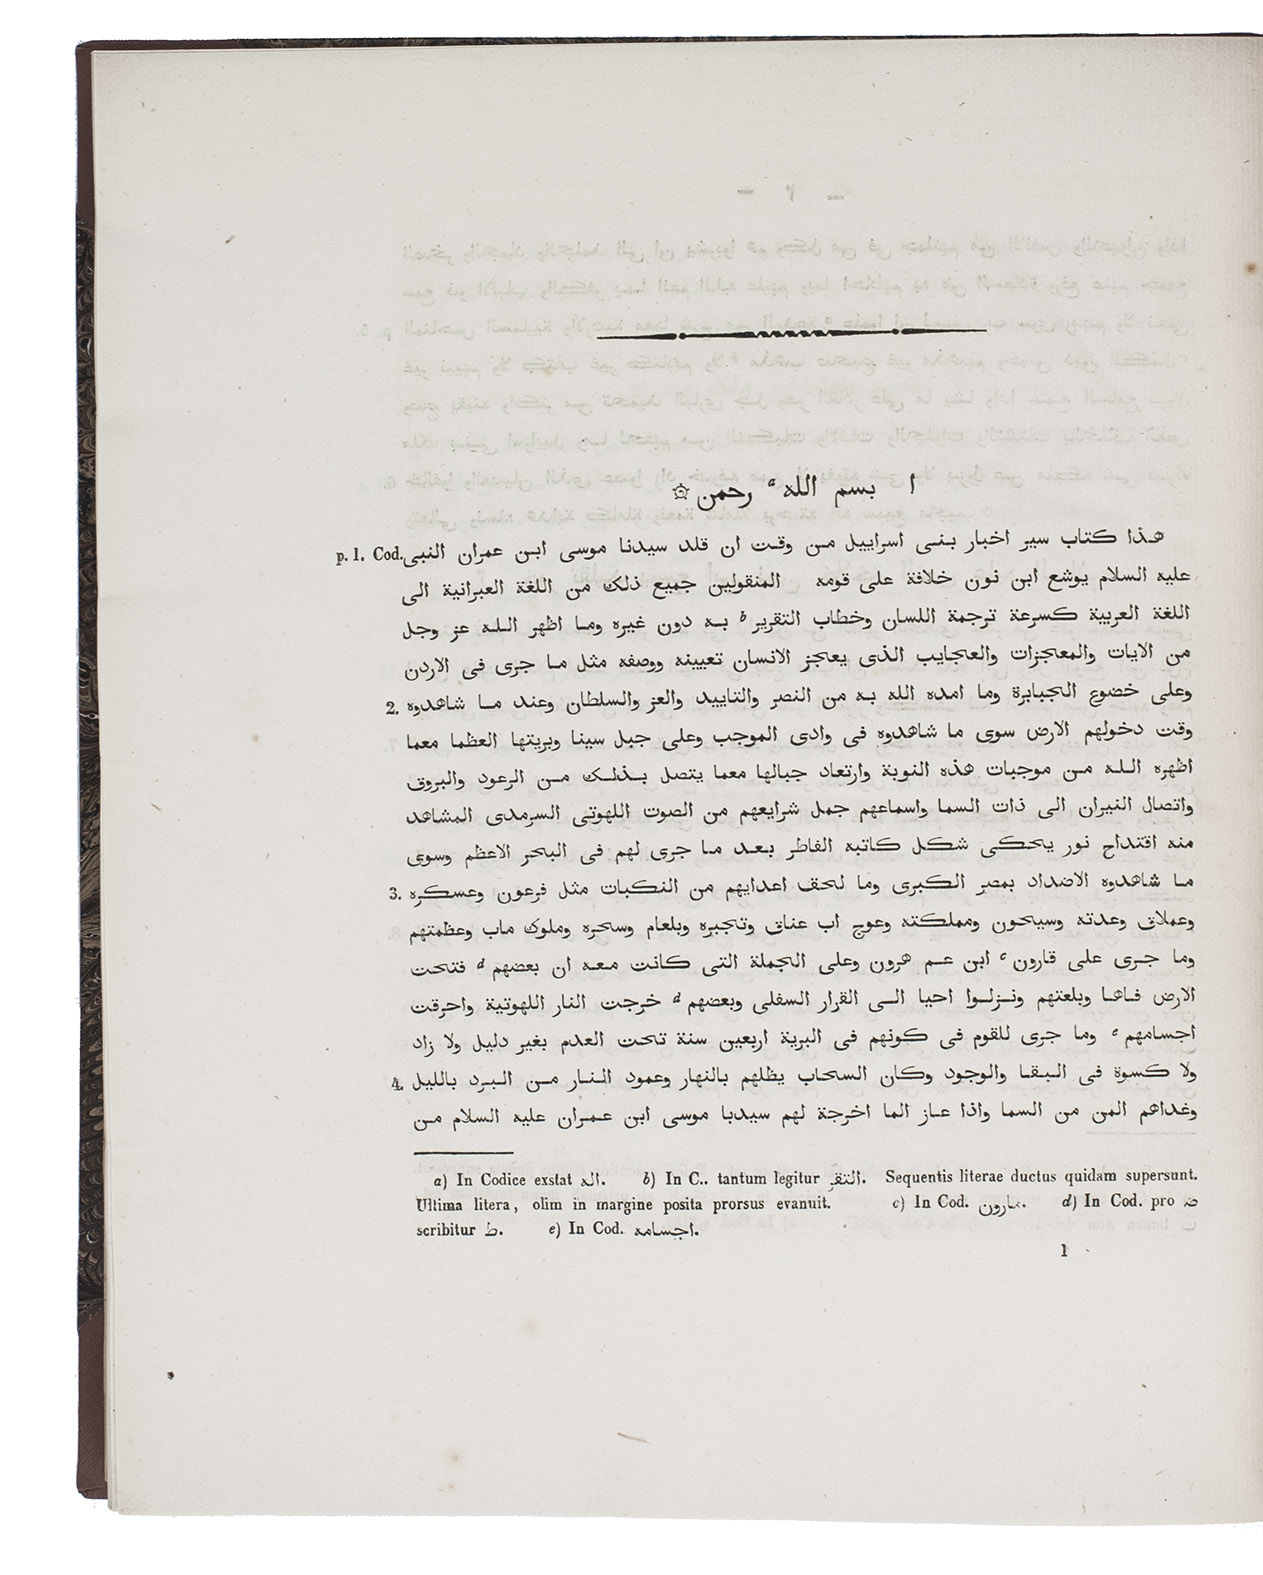 ا بسم الله a رحمن ۞
هذا كتاب سير اخبار بنى اسراييل من وقت ان قلد سيدنا موسى ابن عمران النبى p. 1. Cod.
عليه السلام يوشع ابن نون خلافة على قومه المنقولين جميع ذلك من اللغة العبرانية الى
اللغة العربية كسرعة ترجمة اللسان وخطاب التقرير b به دون غيره وما اظهر الله عز وجل
من الايات والمعجزات والعجايب الذى يعجز الانسان تعيينه ووصفه مثل ما جرى فى الاردن
وعلى خضوع الجبابرة وما امده الله به من النصر والتاييد والعز والسلطان وعند ما شاهدوه 2.
وقت دخولهم الارض سوى ما شاهدوه فى وادى الموجب وعلى جبل سينا وبريتها العظما معما
اظهره الله من موجبات هذه النوبة وارتعاد جبالها معما يتصل بذلك من الرعود والبروق
واتصال النيران الى ذات السما واسماعهم جمل شرايعهم من الصوت اللهوتى السرمدى المشاهد
منه اقتداح نور يحكى شكل كاتبه الفاطر بعد ما جرى لهم فى البحر الاعظم وسوى
ما شاهدوه الاضداد بمصر الكبرى وما لحق اعدايهم من النكبات مثل فرعون وعسكره 3.
وعملاق وعدته وسيحون ومملكته وعوج اب عناق وتجبره وبلعام وسحره وملوك ماب وعظمتهم
وما جرى على قارون c ابن عم هرون وعلى الجملة التى كانت معه ان بعضهم d فتحت
الارض فاها وبلعتهم ونزلوا احيا الى القرار السفلى وبعضهم d خرجت النار اللهوتية واحرقت
اجسامهم e وما جرى للقوم فى كونهم فى البرية اربعين سنة تحت العدم بغير دليل ولا زاد
ولا كسوة فى البقا والوجود وكان السحاب يظلهم بالنهار وعمود النار من البرد بالليل 4.
وغداهم المن من السما واذا عاز الما اخرجة لهم سيدبا موسى ابن عمران عليه السلام من
a) In Codice exstat اله. b) In C.. tantum legitur التقر. Sequentis literae ductus quidam supersunt.
Ultima litera, olim in margine posita prorsus evanuit. c) In Cod. ـارون. d) In Cod. pro ض
scribitur ط. e) In Cod. اجسامه.
1